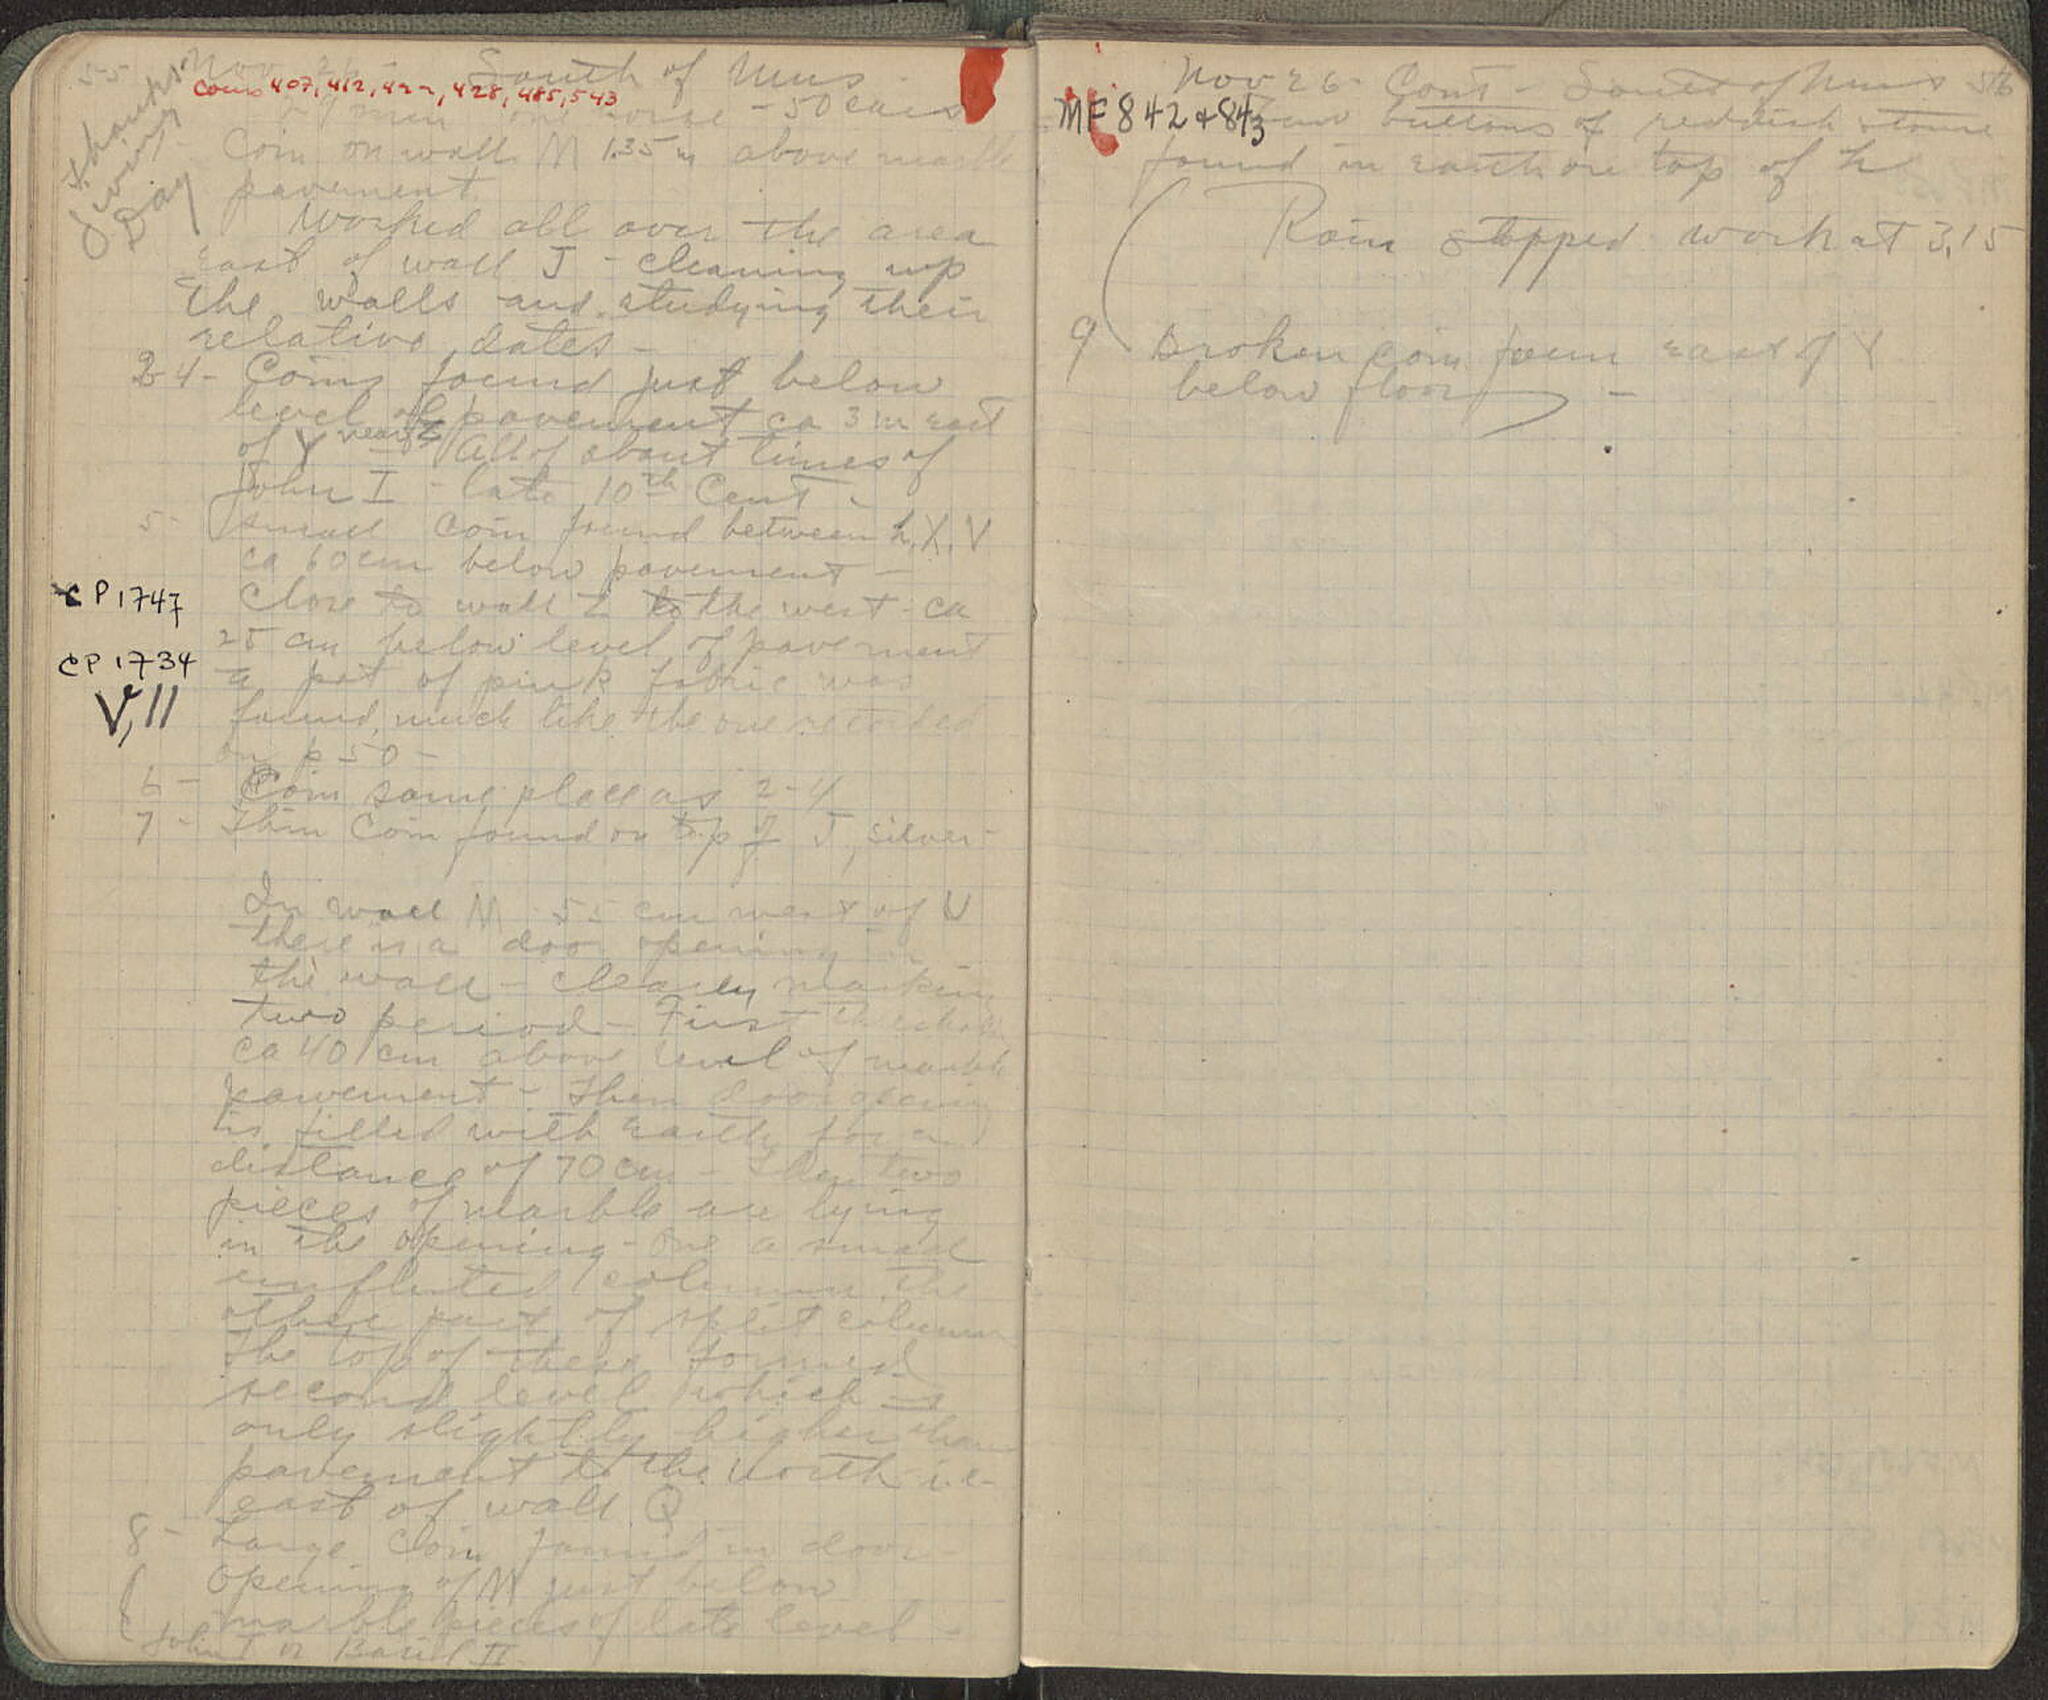 55 Nov. 26 - South of Mus -
Coins 407, 412, 422, 428, 485, 543
Thanks
Giving
Day
men one horse - 50 cars
1- Coin on wall M 1.35 m above marble
pavement
Worked all over the area
East of wall J - cleaning up
the walls and studying their
relative dates -
2-4- Coins found just below
level of pavement ca 3 m East
of Y near Z All of about times of
John I - late 10th Cent -
5- Small coin found between h, X, V
ca 60 cm below pavement -
CP 1747
Close to wall Z to the west - ca
25 cm below level of pavement
CP 1734
a pot of pink fabric was
V, 11
found, much like the one recorded
on p 50 -
6- Coin same place as 2-4
7- Thin Coin found on top of J, silver -
In wall M 55 cm west of U
there is a door opening in
the wall - clearly marking
two period - First threshold
ca 40 cm above level of marble
pavement - Then door opening
is filled with earth for a
distance of 70 cm - Then two
pieces of marble are lying
in the opening - One a small
unfluted column, the
other part of split column
The top of these formed
second level which is
only slightly higher than
pavement to the North i.e.
east of wall Q
8- Large Coin found in door-
opening of M just below
marble pieces of late level -
John I or Basil II
Nov 26 - Cont - South of Mus 56
MF 842 & 843
buttons of reddish stone
found in earth on top of h
Rain stopped work at 3.15
9 Broken coin foun East of Y
below floor -